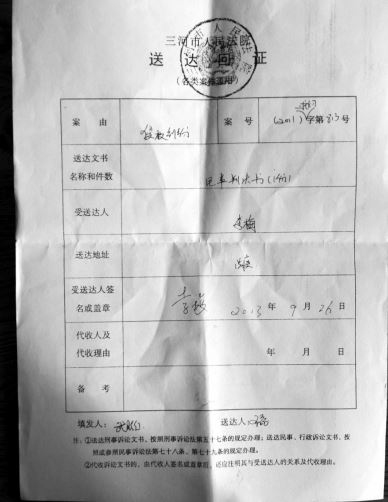 三河市人民法院
送达回证
（各类案件通用）
案由 股权纠纷 案号 (2011) 字第313号
送达文书名称和件数 民事判决书(1份)
受送达人 李梅
送达地址
受送达人签名或盖章 2013年9月26日
代收人及代收理由 年 月 日
备考
填发人： 送达人：
注：①送达刑事诉讼文书，按照刑事诉讼法第五十七条的规定办理；送达民事、行政诉讼文书，按
照或参照民事诉讼法第七十八条、第七十九条的规定办理。
②代收诉讼文书的，由代收人签名或盖章后，还应注明其与受送达人的关系及代收理由。